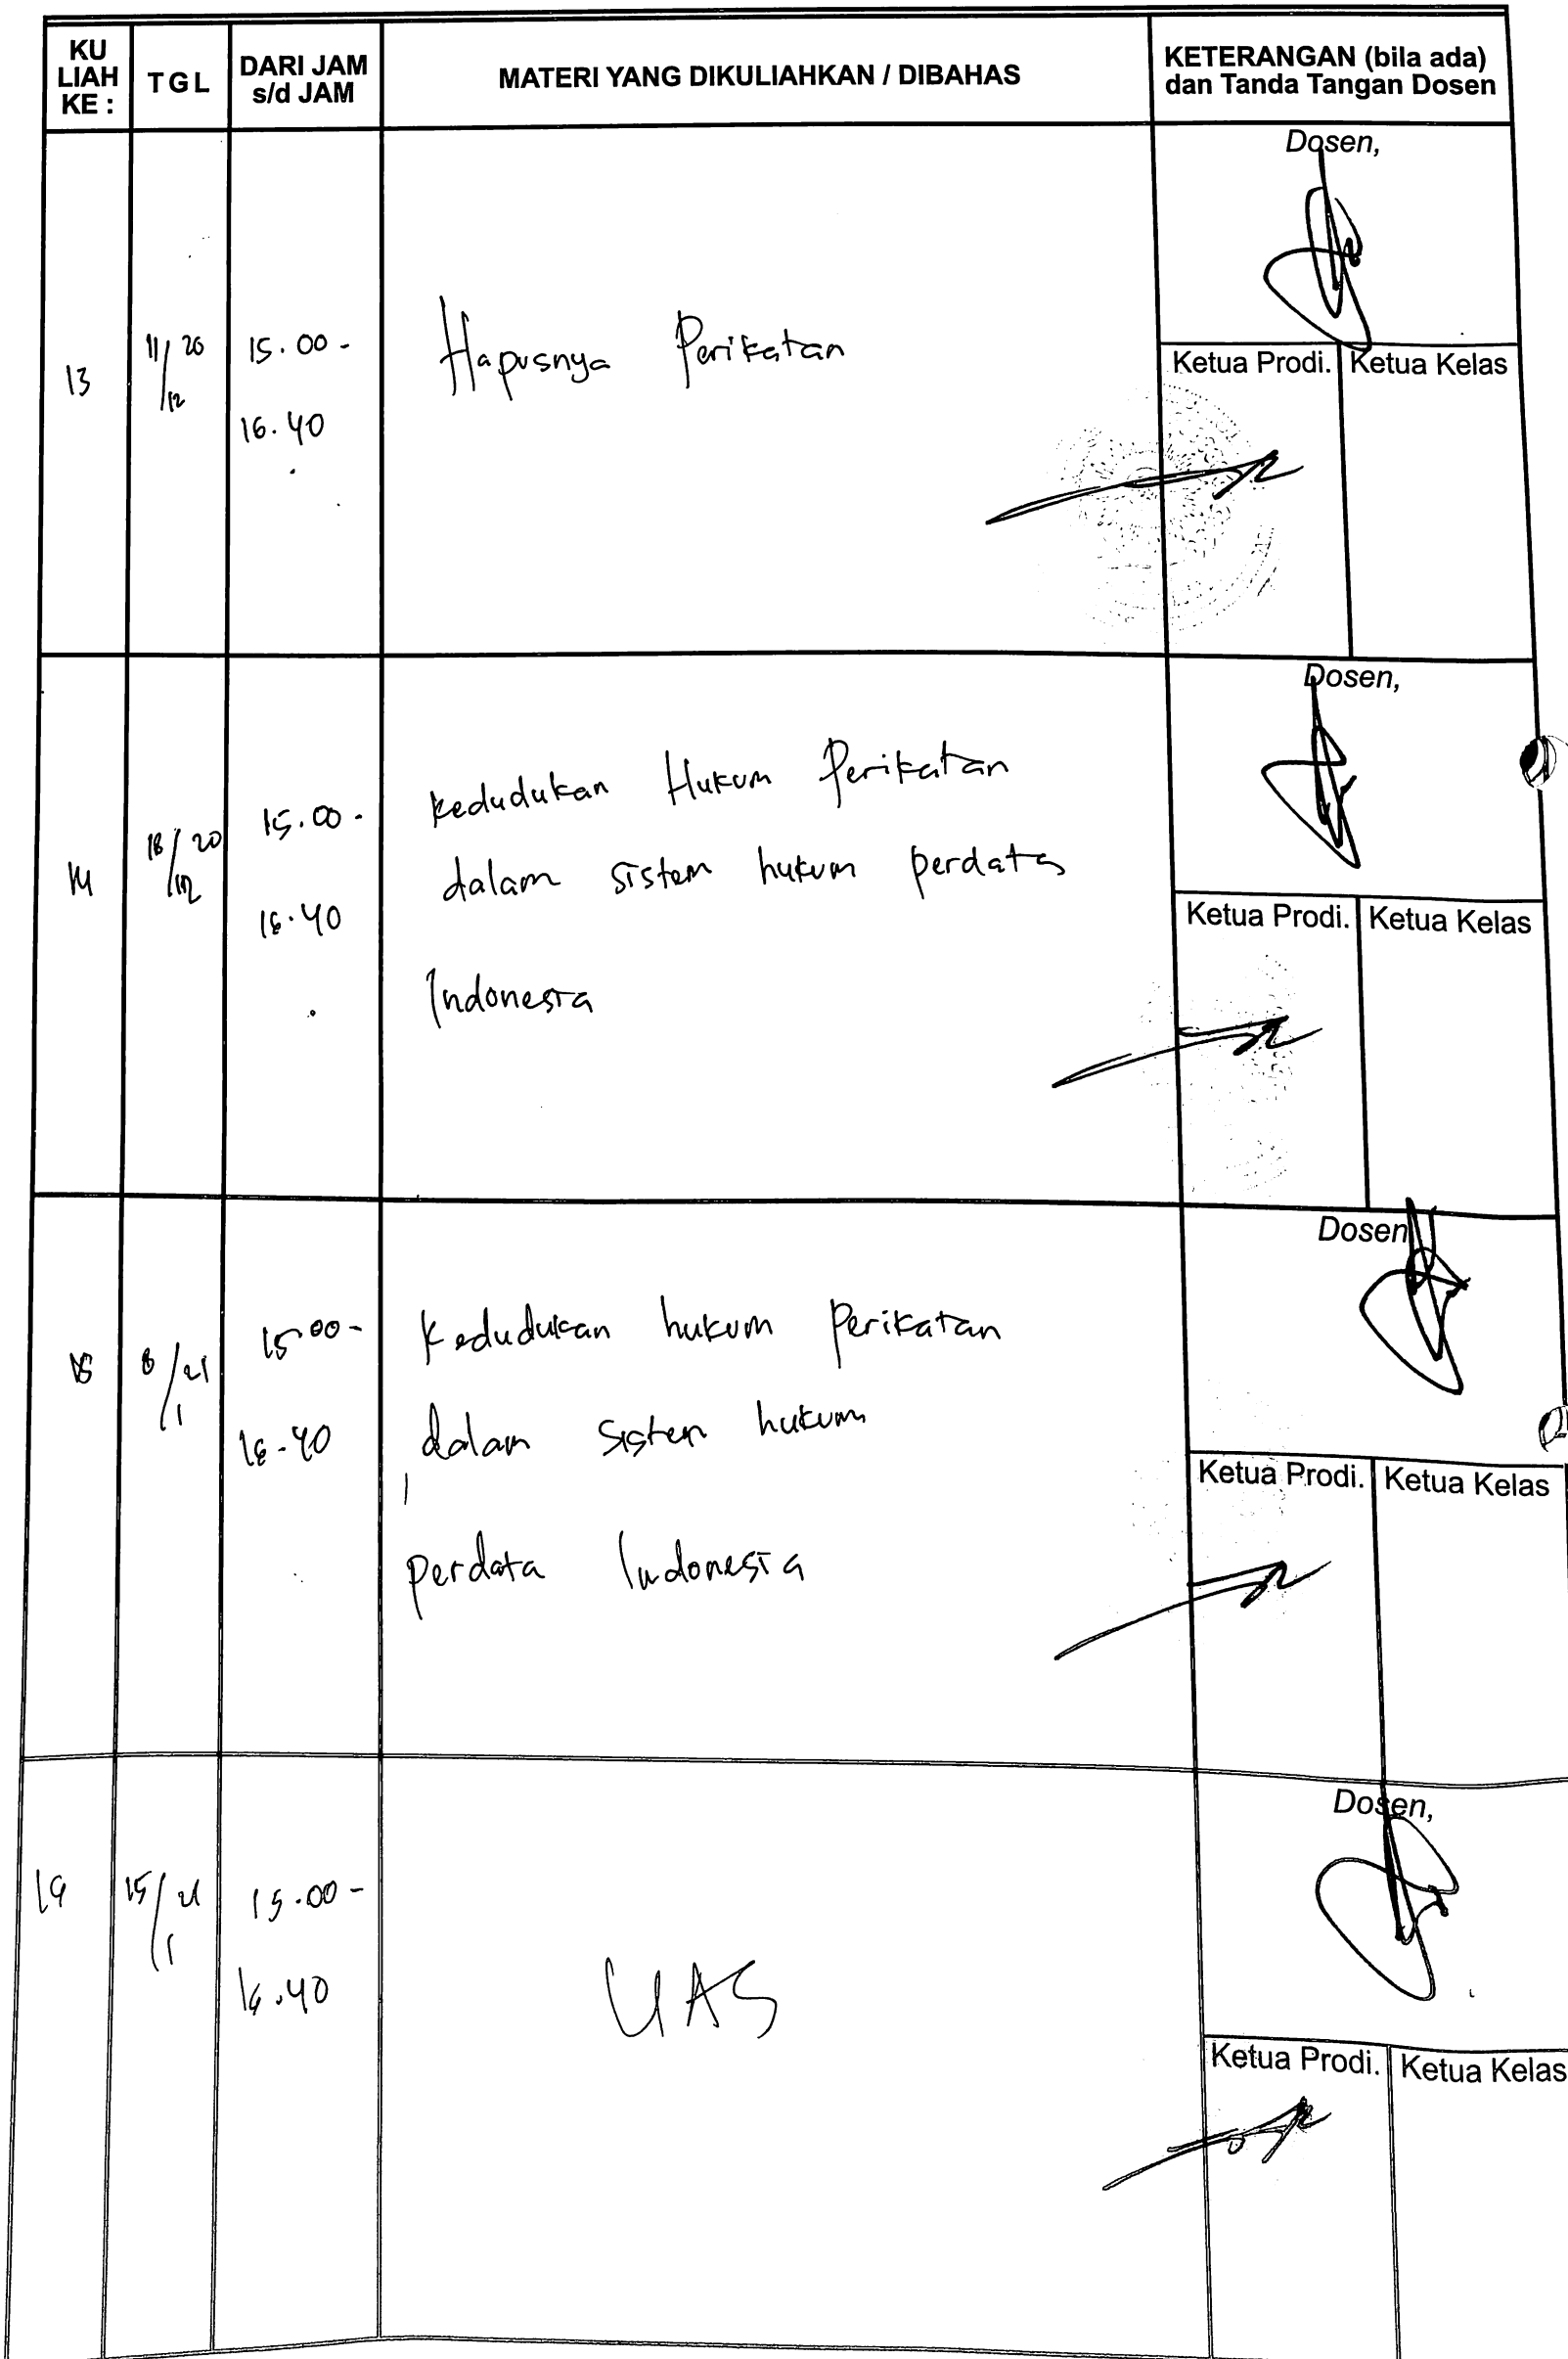 KU LIAH KE :
TGL
DARI JAM s/d JAM
MATERI YANG DIKULIAHKAN / DIBAHAS
KETERANGAN (bila ada) dan Tanda Tangan Dosen
13
11/12 20
15.00 -
16.40
Hapusnya Perikatan
Dosen,
Ketua Prodi.
Ketua Kelas
14
18/12 20
15.00 -
16.40
Kedudukan Hukum Perikatan
dalam sistem hukum perdata
Indonesia
Dosen,
Ketua Prodi.
Ketua Kelas
15
8/1 21
15.00 -
16.40
Kedudukan hukum Perikatan
dalam sistem hukum
perdata Indonesia
Dosen
Ketua Prodi.
Ketua Kelas
16
15/1 21
15.00 -
16.40
UAS
Dosen,
Ketua Prodi.
Ketua Kelas